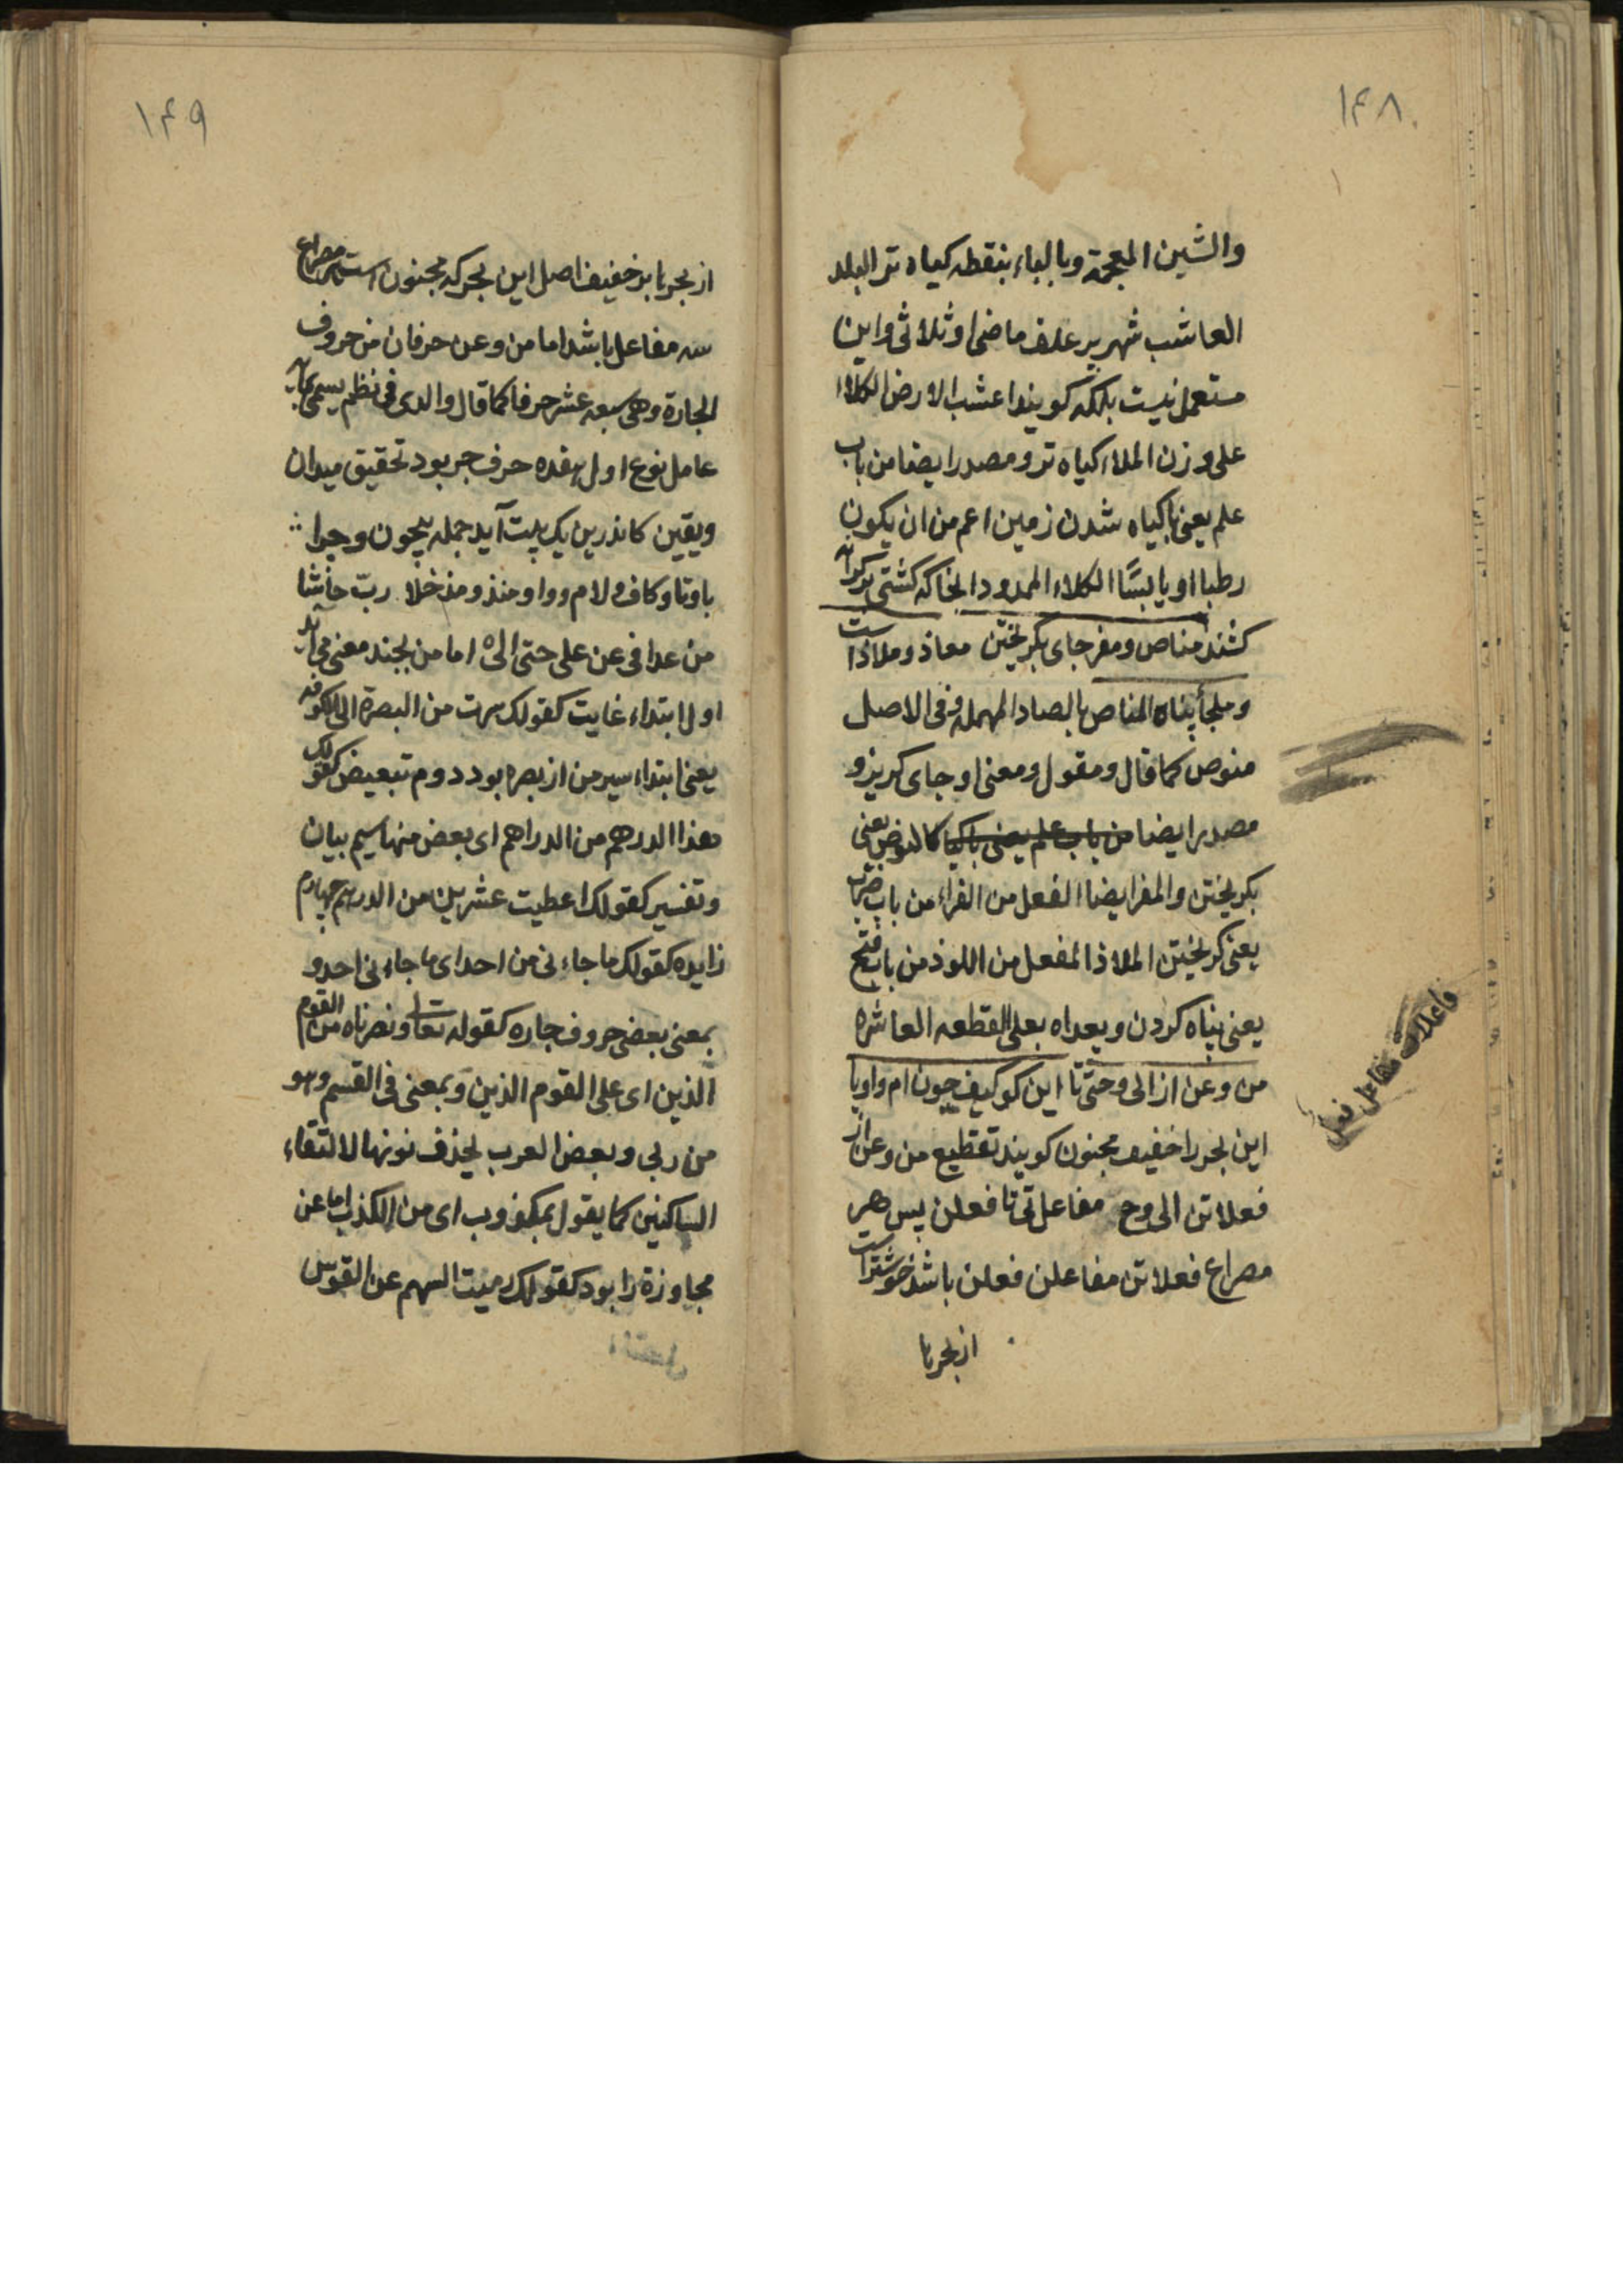 ۱۴۸
والشین المعجمة وبالباء بنقطه کیاه تر البلد
العاشب شهر پر علف ماضی او ثلاثی واین
مستعمل نیست بلکه کویند اعشب الارض الکلاء
علی وزن الملاء کیاه تر ومصدر ایضا من باب
علم یعنی با کیاه شدن زمین اعم من ان یکون
رطبا او یابسًا الکلاء الممدود انجا که کشتی بر کرانه
کشند مناص ومفر جای بکریختن معاذ وملاذ است
وملجأ پناه المناص بالصاد المهمله وفی الاصل
منوص کما قال ومقول ومعنی او جای کریز و
مصدر ایضا من باب علم یعنی باکیا کالنوص یعنی
بکریختن والمفر ایضا الفعل من الفراء من باب ضرب
یعنی کریختن الملاذ المفعل من اللوذ من باب فتح
یعنی پناه کردن وبعداه بعلی القطعه العاشره
من وعن از الی وحتی تا این کو کیف چون ام واو یا
این بحر را خفیف مجنون کویند تقطیع من وعن از
فعلاتن الی وح مفاعل تی تا فعلن پس هر
مصراع فعلاتن مفاعلن فعلن باشد خوشتر است
از بحر با
فاعلات مفاعل فعل
۱۴۹
از بحر با بر خفیف اصل این بحر که مجنون است هر مصراع
سه مفاعل باشد اما من وعن حرفان من حروف
الجارة وهی سبعه عشر حرفا کما قال والدی فی نظم یسمی بمایه
عامل نوع اول هفده حرف جر بود تحقیق میدان
ویقین کاندرین یک بیت آید جمله بیچون وچرا
با وتا وکاف ولام وواو منذ ومذ خلا رب حاشا
من عدا فی عن علی حتی الی اما من بچند معنی می آید
اول ابتداء غایت کقولک سرت من البصرة الی الکوفه
یعنی ابتداء سیر من از بصره بود دوم تبعیض کقولک
هذا الدرهم من الدراهم ای بعض منها سیم بیان
وتفسیر کقولک اعطیت عشرین من الدرهم چهارم
زایده کقولک ما جاءنی من احد ای ما جاءنی احد و
بمعنی بعضی حروف جاره کقوله تعا ونصرناه من القوم
الذین ای علی القوم الذین وبمعنی فی القسم وهو
من ربی وبعض العرب یحذف نونها لالتقاء
الساکنین کما یقول بمکذوب ای من الکذب اما عن
مجاوزة را بود کقولک رمیت السهم عن القوس